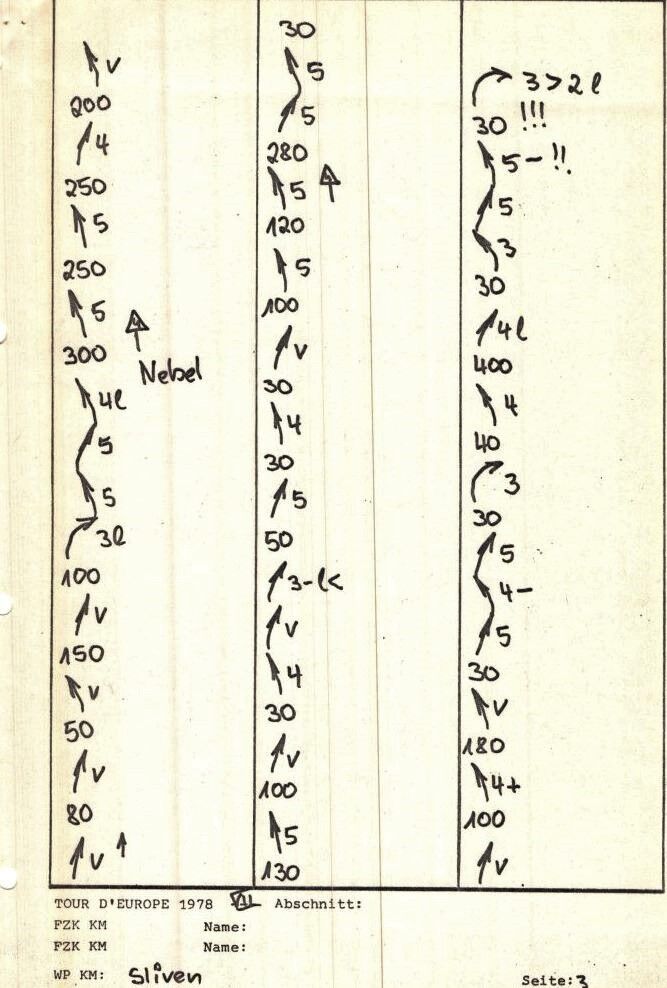 v
200
4
250
5
250
5
300
Nebel
4l
5
5
3l
100
v
150
v
50
v
80
v
30
5
5
280
5
120
5
100
v
30
4
30
5
50
3-l<
v
4
30
v
100
5
130
3>2l
30 !!!
5-!!
5
3
30
4l
400
4
40
3
30
5
4-
5
30
v
180
4+
100
v
TOUR D'EUROPE 1978 Abschnitt:
FZK KM Name:
FZK KM Name:
WP KM: Sliven Seite: 3